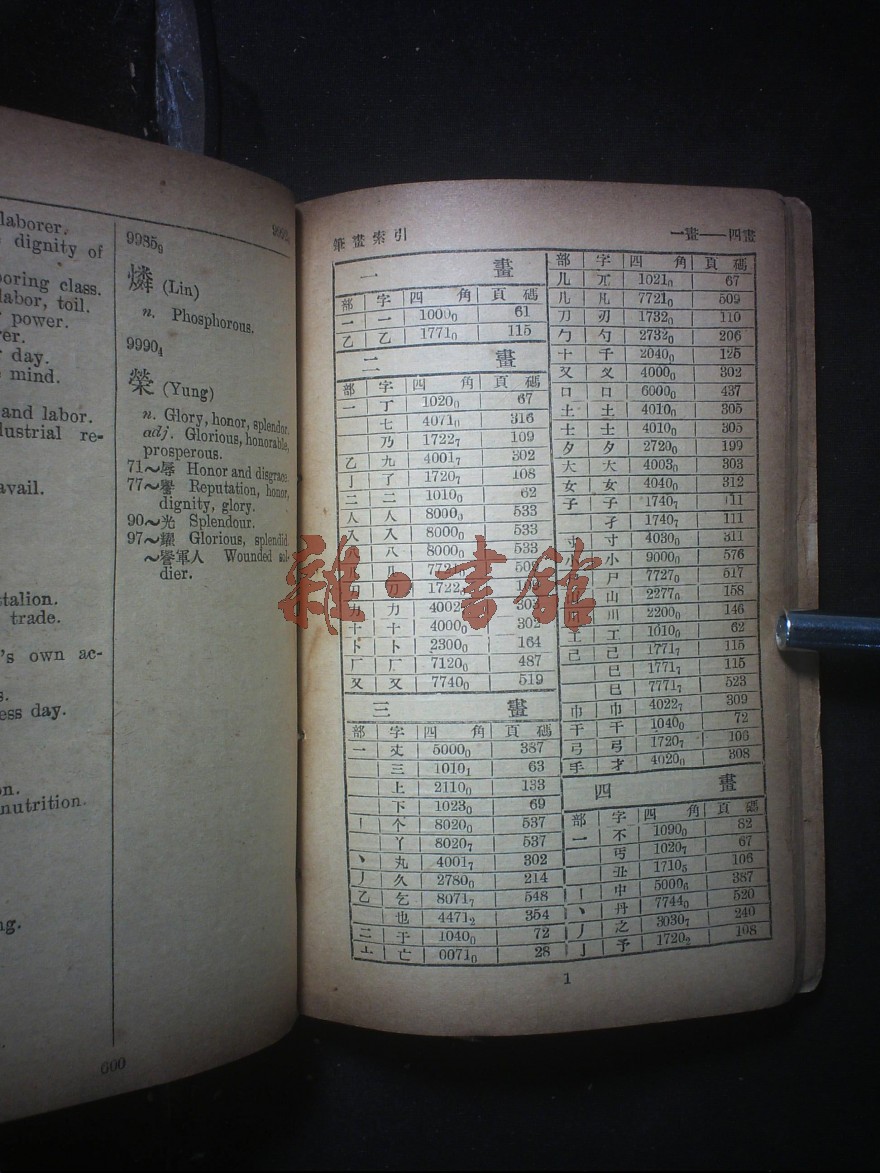 laborer.
dignity of
oring class.
labor, toil.
power.
day.
mind.
and labor.
dustrial re-
avail.
talion.
trade.
's own ac-
ess day.
on.
nutrition.
600
9985₉
燐 (Lin)
n. Phosphorous.
9990₄
榮 (Yung)
n. Glory, honor, splendor.
adj. Glorious, honorable,
prosperous.
71~辱 Honor and disgrace.
77~譽 Reputation, honor,
dignity, glory.
90~光 Splendour.
97~耀 Glorious, splendid.
~譽軍人 Wounded sol-
dier.
筆畫索引
一畫——四畫
一 畫
部 字 四角 頁碼
一 一 1000₀ 61
乙 乙 1771₀ 115
二 畫
部 字 四角 頁碼
一 丁 1020₀ 67
七 4071₀ 316
乃 1722₇ 109
乙 九 4001₇ 302
亅 了 1720₇ 108
二 二 1010₀ 62
人 人 8000₀ 533
入 入 8000₀ 533
八 八 8000₀ 533
力 力 4002 303
十 十 4000₀ 302
卜 卜 2300₀ 164
厂 厂 7120₀ 487
又 又 7740₀ 519
三 畫
部 字 四角 頁碼
一 丈 5000₀ 387
三 1010₁ 63
上 2110₀ 133
下 1023₀ 69
丨 个 8020₀ 537
丫 8020₇ 537
丶 丸 4001₇ 302
丿 久 2780₀ 214
乙 乞 8071₇ 548
也 4471₂ 354
二 于 1040₀ 72
亠 亡 0071₀ 28
部 字 四角 頁碼
儿 兀 1021₀ 67
几 凡 7721₀ 509
刀 刃 1732₀ 110
勹 勺 2732₀ 206
十 千 2040₀ 125
又 叉 4000₀ 302
口 口 6000₀ 437
土 土 4010₀ 305
士 士 4010₀ 305
夕 夕 2720₀ 199
大 大 4003₀ 303
女 女 4040₀ 312
子 子 1740₇ 111
孑 1740₇ 111
寸 寸 4030₀ 311
小 小 9000₀ 576
尸 7727₀ 517
山 2277₀ 158
川 2200₀ 146
工 工 1010₀ 62
己 己 1771₇ 115
已 1771₇ 115
巳 7771₇ 523
巾 巾 4022₇ 309
干 干 1040₀ 72
弓 弓 1720₇ 106
手 才 4020₀ 308
四 畫
部 字 四角 頁碼
一 不 1090₀ 82
丐 1020₇ 67
丑 1710₅ 106
丨 中 5000₆ 387
丶 丹 7744₀ 520
丿 之 3030₇ 240
亅 予 1720₂ 108
1
雜·書館